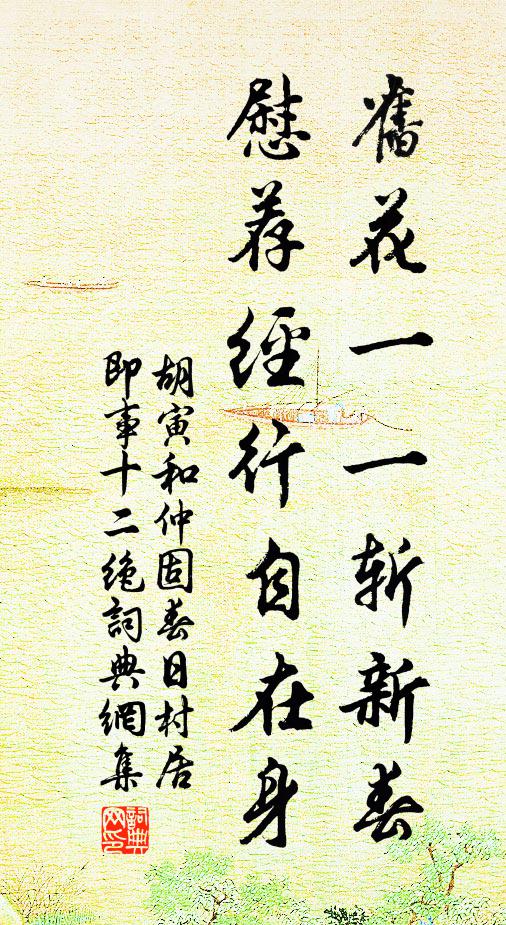 舊花一一斬新春
慰荐經行自在身
胡寅和仲固春日村居
即事十二绝詞典網集
詞典网印